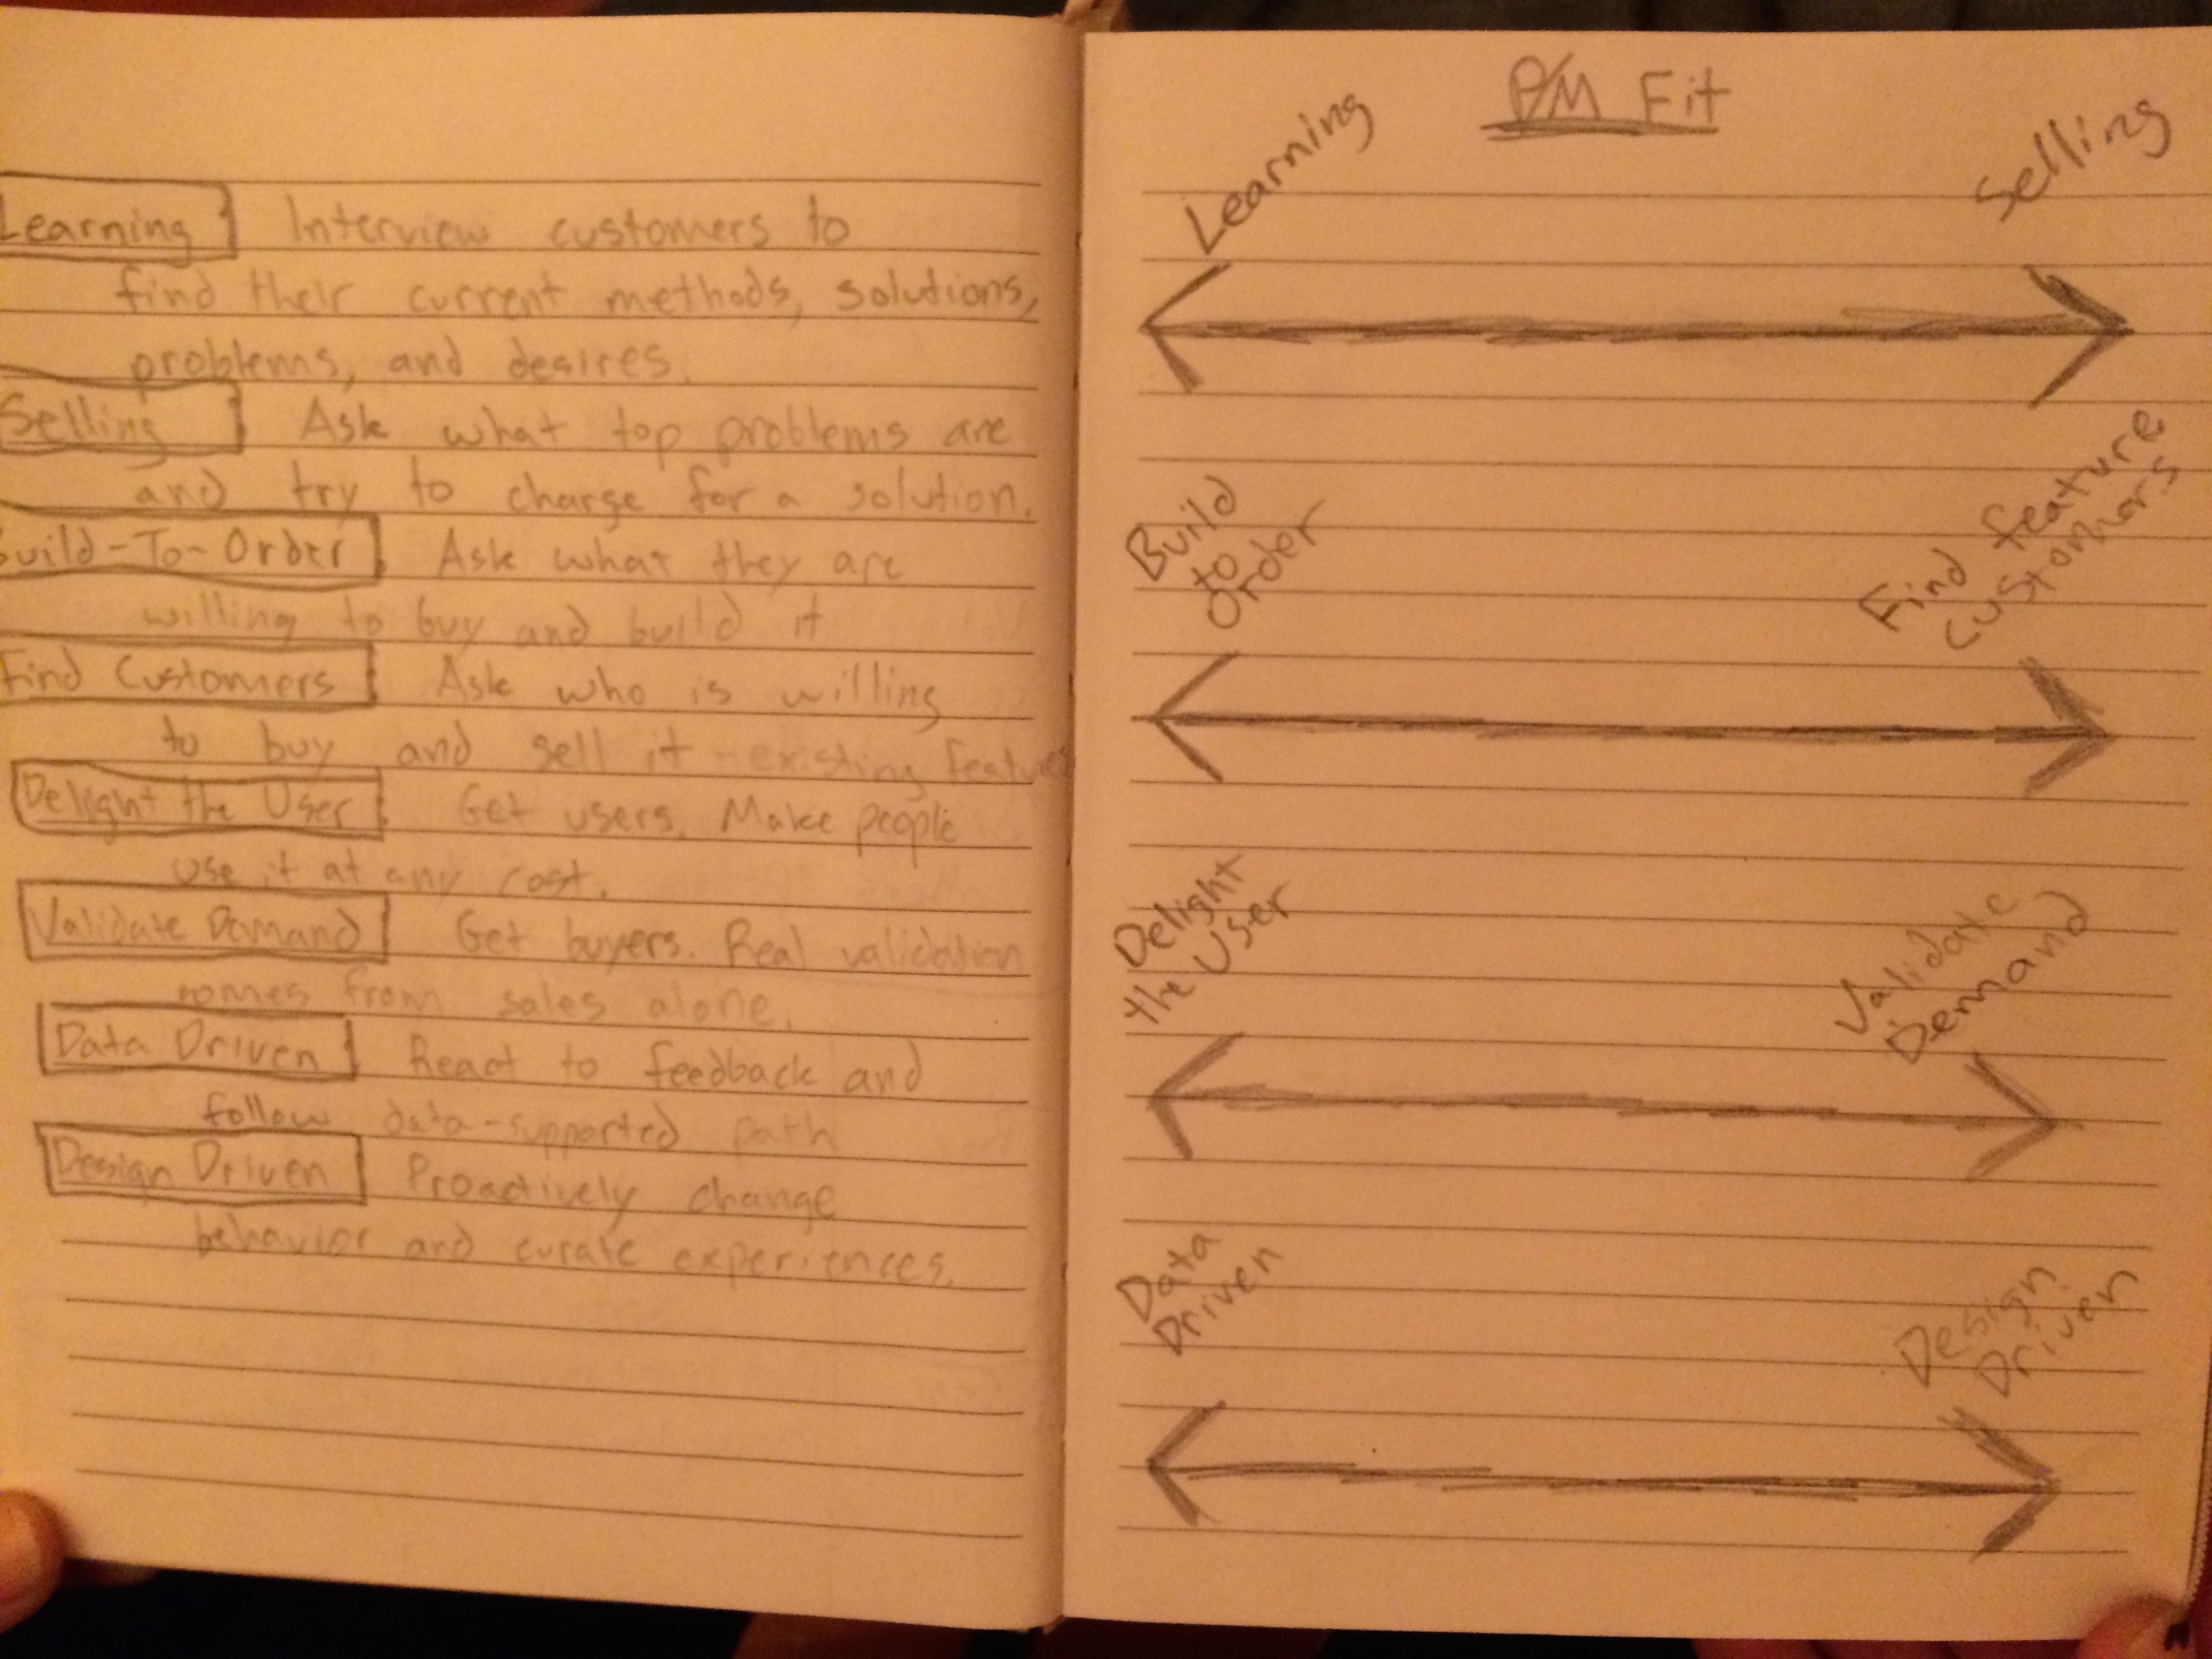 Learning Interview customers to
find their current methods, solutions,
problems, and desires.
Selling Ask what top problems are
and try to charge for a solution.
Build-To-Order Ask what they are
willing to buy and build it
Find Customers Ask who is willing
to buy and sell it - existing features
Delight the User Get users. Make people
use it at any cost.
Validate Demand Get buyers. Real validation
comes from sales alone.
Data Driven React to feedback and
follow data-supported path
Design Driven Proactively change
behavior and curate experiences.
P/M Fit
Learning
Selling
Build
to
Order
Find feature
customers
Delight
the User
Validate
Demand
Data
Driven
Design
Driven